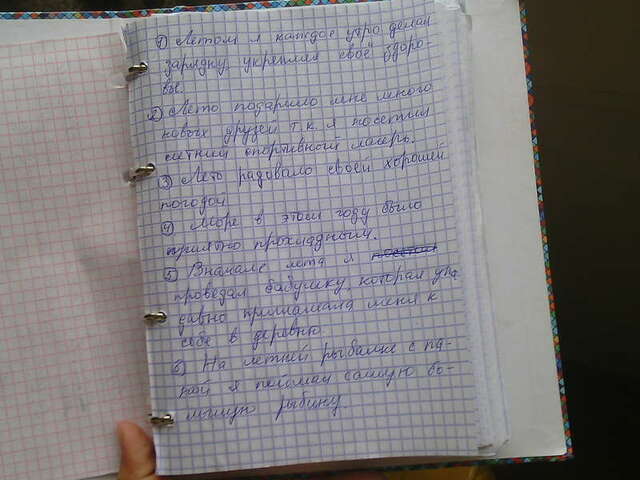 1) Летом я каждое утро делал
зарядку укрепляя своё здоро-
вье.
2) Лето подарило мне много
новых друзей т.к. я посетил
летний спортивный лагерь.
3) Лето радовало своей хорошей
погодой
4) Море в этом году было
приятно прохладным.
5) Вначале лета я посетил
проведал бабушку, которая уже
давно приглашала меня к
себе в деревню.
6) На летней рыбалке с па-
пой я поймал самую бо-
льшую рыбину.